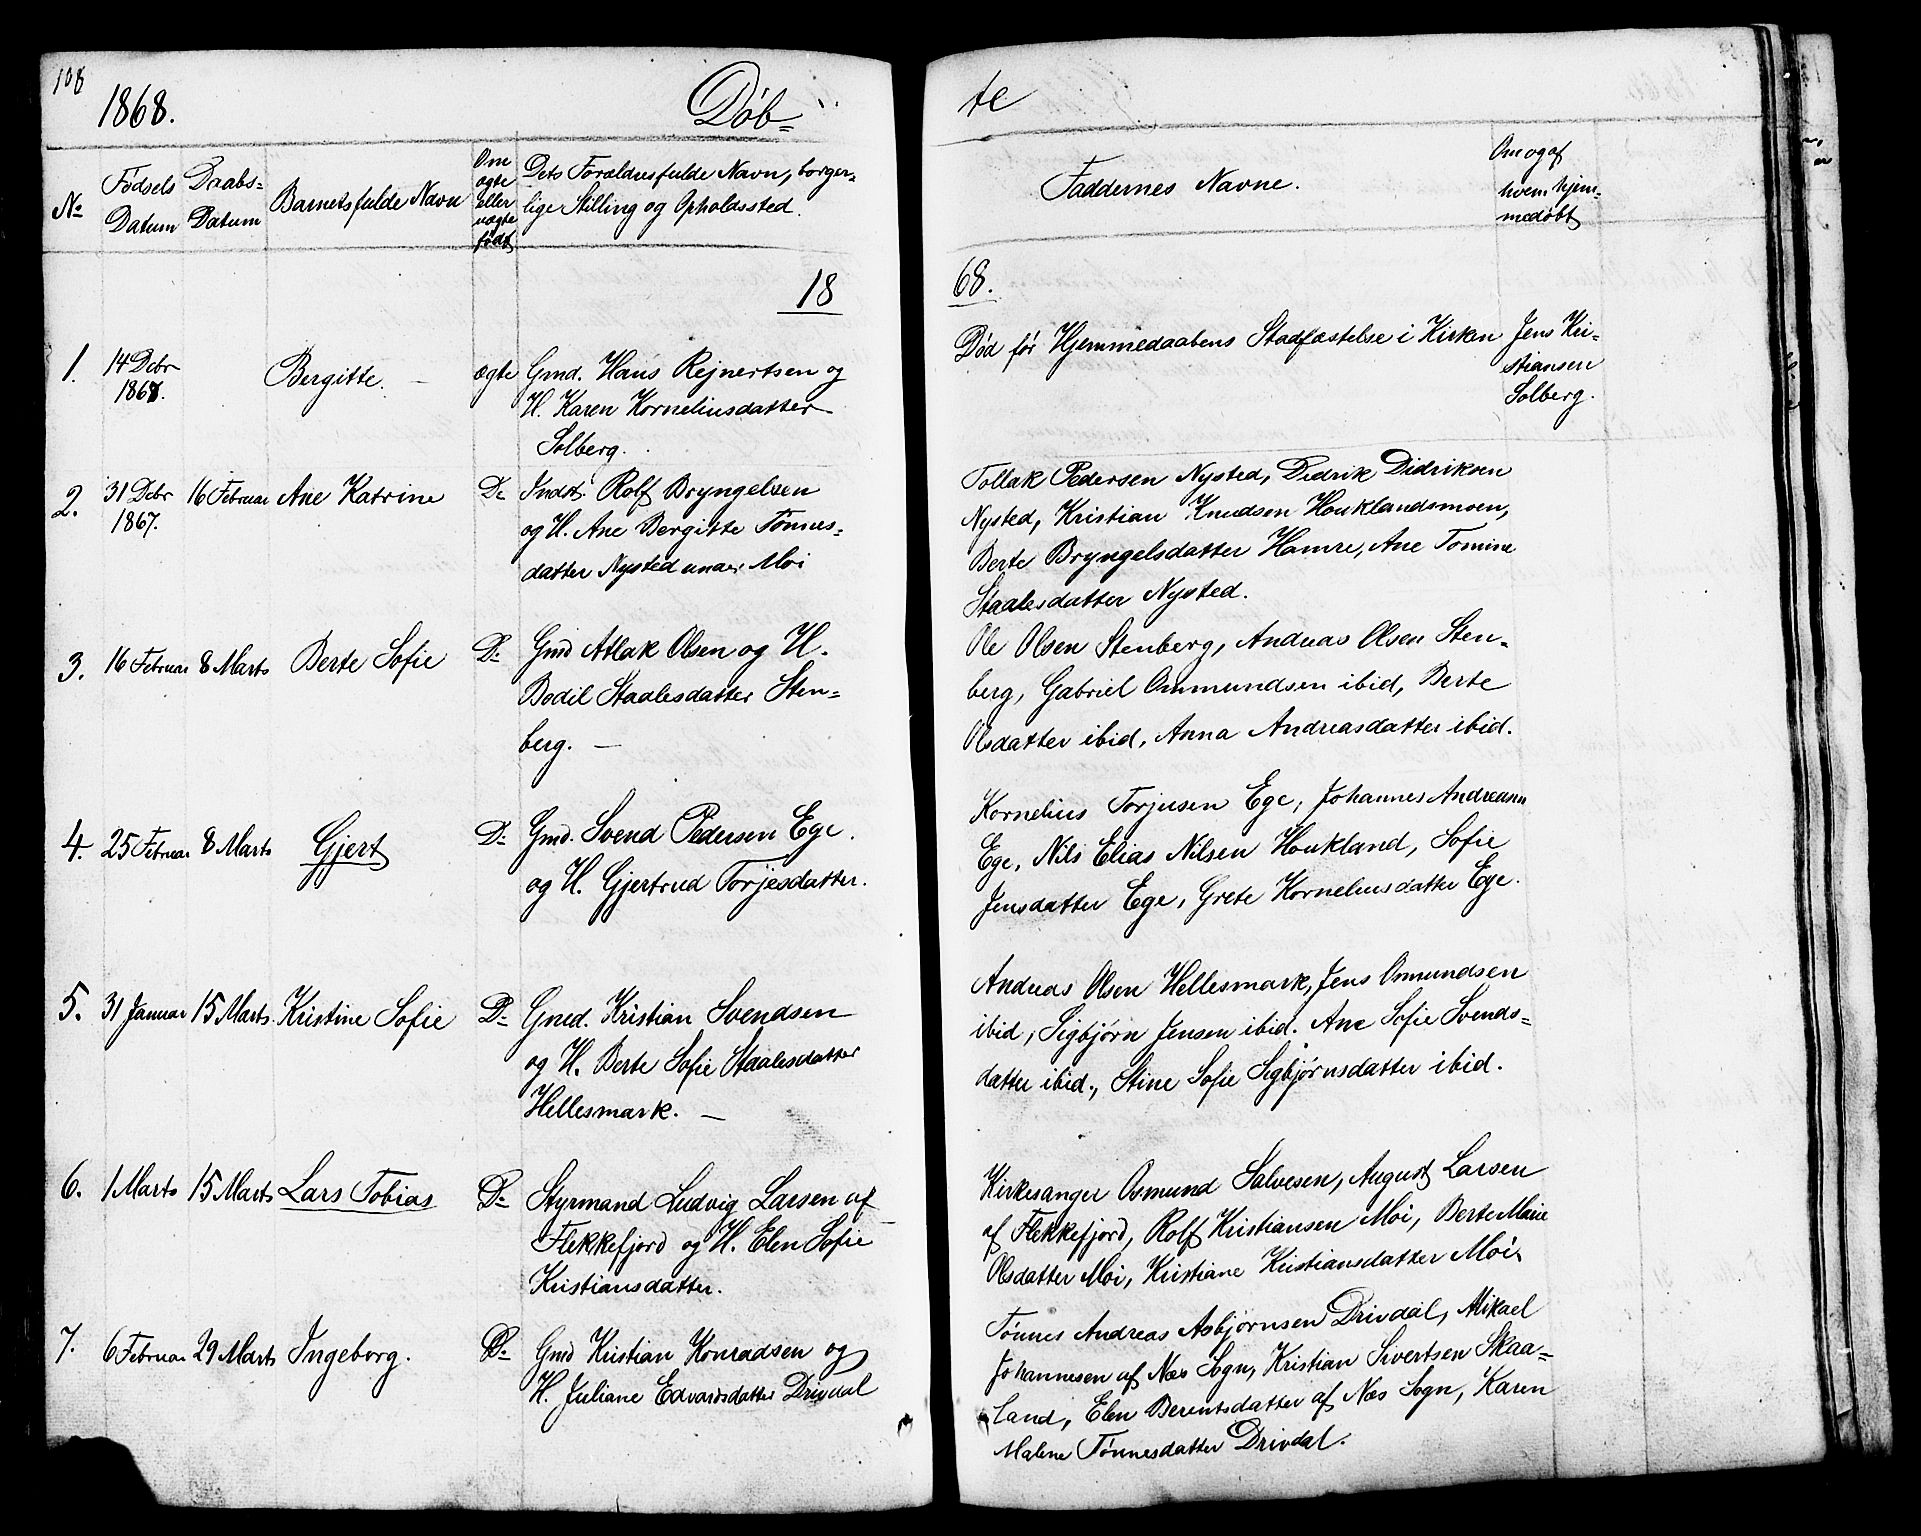 108
1868.
Døb-
te
No
Fødsels
Datum
Daabs-
Datum
Barnets fulde Navn
Om
ægte
eller
uægte
født
Dets Forældres fulde Navn, borger-
lige Stilling og Opholdssted.
Faddernes Navne.
Om og af
hvem hjem-
medøbt
18
68.
1.
14 Debr
1868.
Bergitte. —
ægte
Gmd. Hans Rejnertsen og
H. Karen Korneliusdatter
Solberg.
Død før Hjemmedaabens Stadfæstelse i Kirken
Jens Kri-
stiansen
Solberg.
2.
31 Debr
1867.
16 Februar
Ane Katrine
Do
Indst. Rolf Bryngelsen
og H. Ane Bergitte Tønnes-
datter Nysted under Moi
Tollak Pedersen Nysted, Didrik Didriksen
Nysted, Kristian Knudsen Houklandsmoen,
Berte Bryngelsdatter Hamre, Ane Tomine
Staalesdatter Nysted.
3.
16 Februar
8 Marts
Berte Sofie
Do
Gmd Atlak Olsen og H.
Bodil Staalesdatter Sten-
berg. —
Ole Olsen Stenberg, Andreas Olsen Sten-
berg, Gabriel Ommundsen ibid, Berte
Olsdatter ibid, Anna Andreasdatter ibid.
4.
25 Februar
8 Marts
Gjert
Do
Gmd. Svend Pedersen Ege.
og H. Gjertrud Torjesdatter.
Kornelius Torjusen Ege, Johannes Andreasen
Ege, Nils Elias Nilsen Houkland, Sofie
Jensdatter Ege, Grete Korneliusdatter Ege.
5.
31 Januar
15 Marts.
Kristine Sofie
Do
Gmd. Kristian Svendsen
og H. Berte Sofie Staalesdatter
Hellesmark. —
Andreas Olsen Hellesmark, Jens Osmundsen
ibid, Sigbjørn Jensen ibid. Ane Sofie Svends-
datter ibid., Stine Sofie Sigbjørnsdatter ibid.
6.
1 Marts
15 Marts
Lars Tobias
Do
Styrmand Ludvig Larsen af
Flekkefjord og H. Elen Sofie
Kristiansdatter.
Kirkesanger Osmund Salvesen, August Larsen
af Flekkefjord, Rolf Kristiansen Moi, Berte Marie
Olsdatter Moi, Kristiane Kristiansdatter Moi.
7.
6 Februar
29 Marts
Ingeborg.
Do
Gmd Kristian Konradsen og
H. Juliane Edvardsdatter Drivdal
Tønnes Andreas Asbjørnsen Drivdal, Mikael
Johannesen af Næs Sogn, Kristian Sivertsen Skaa-
land, Elen Berentsdatter af Næs Sogn, Karen
Malene Tønnesdatter Drivdal.